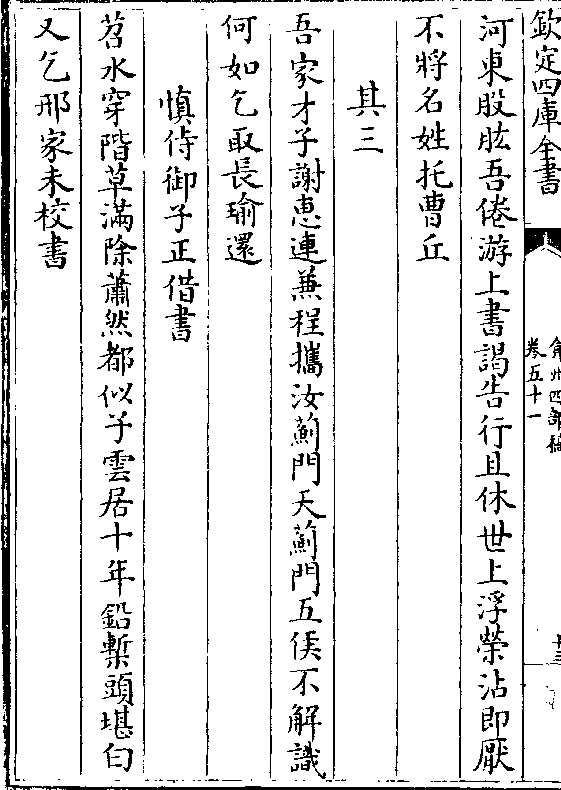 欽定四庫全書
弇州四部稿
卷五十一
十三
河東股肱吾倦游上書謁告行且休世上浮榮沾即厭
不將名姓托曹丘
其三
吾家才子謝惠連兼程攜汝薊門天薊門五侯不解識
何如乞取長瑜還
慎侍御子正借書
苕水穿階草滿除蕭然都似子雲居十年鉛槧頭堪白
又乞邢家未校書